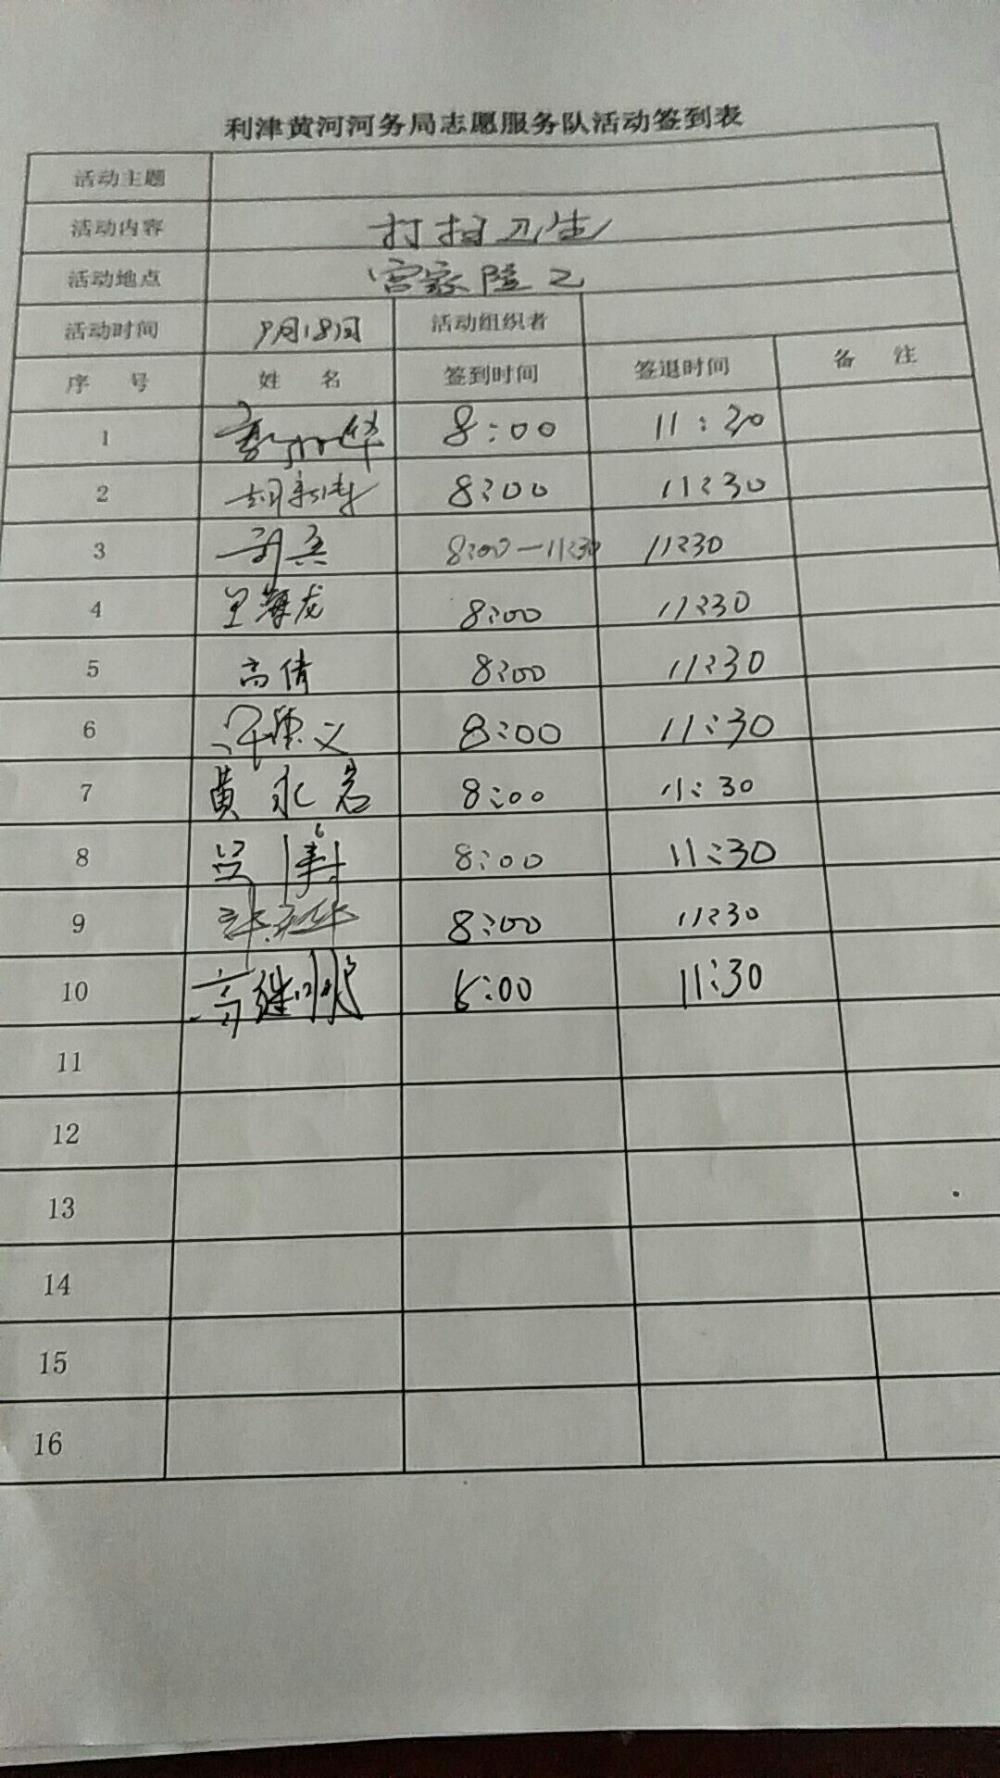 利津黄河河务局志愿服务队活动签到表
活动主题
活动内容 打扫卫生
活动地点 宫家险工
活动时间 9月18日 活动组织者
序 号 姓 名 签到时间 签退时间 备 注
1 8:00 11:30
2 胡新涛 8:00 11:30
3 8:00-11:30 11:30
4 龙 8:00 11:30
5 高倩 8:00 11:30
6 义 8:00 11:30
7 黄永岩 8:00 11:30
8 吴博 8:00 11:30
9 8:00 11:30
10 高继 8:00 11:30
11
12
13
14
15
16